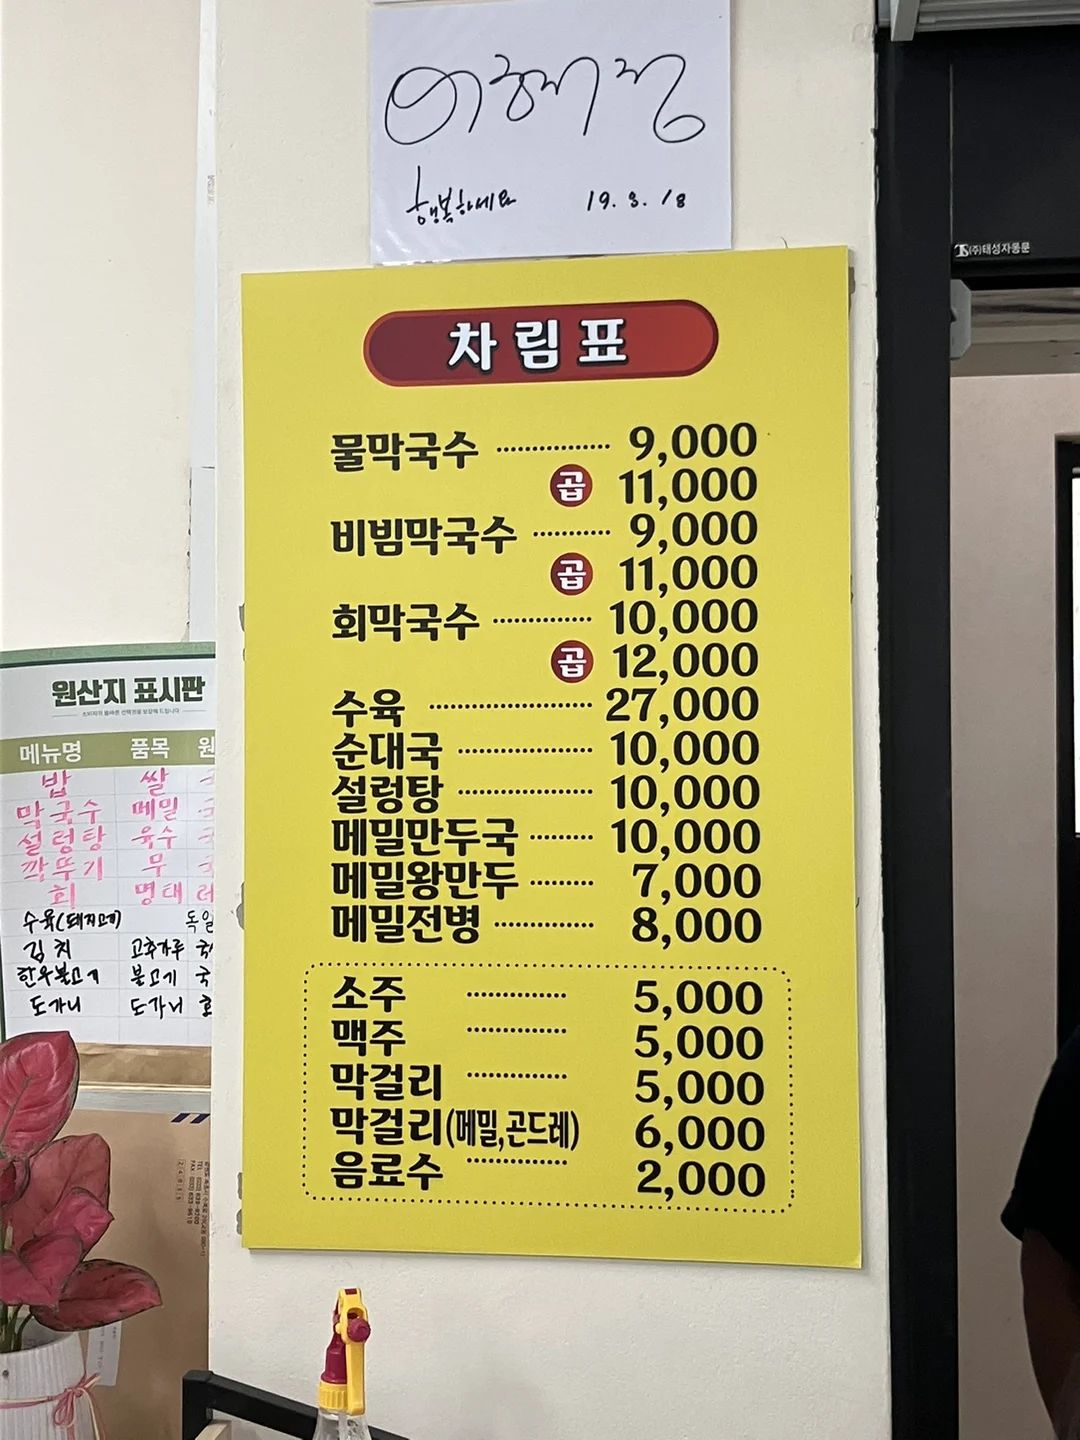 이혜정
행복하세요 19. 8. 18
(주)태성자동문
차림표
물막국수 ·············· 9,000
곱 11,000
비빔막국수 ·········· 9,000
곱 11,000
회막국수 ············· 10,000
곱 12,000
수육 ····················· 27,000
순대국 ················· 10,000
설렁탕 ················· 10,000
메밀만두국 ········· 10,000
메밀왕만두 ········· 7,000
메밀전병 ············· 8,000
소주 ·············· 5,000
맥주 ·············· 5,000
막걸리 ·············· 5,000
막걸리(메밀,곤드레) 6,000
음료수 ·············· 2,000
원산지 표시판
메뉴명 품목 원
밥 쌀
막국수 메밀
설렁탕 육수
깍뚜기 무
회 명태 러
수육(돼지고기) 독일
김치 고추가루 국
한우불고기 불고기 국
도가니 도가니 호